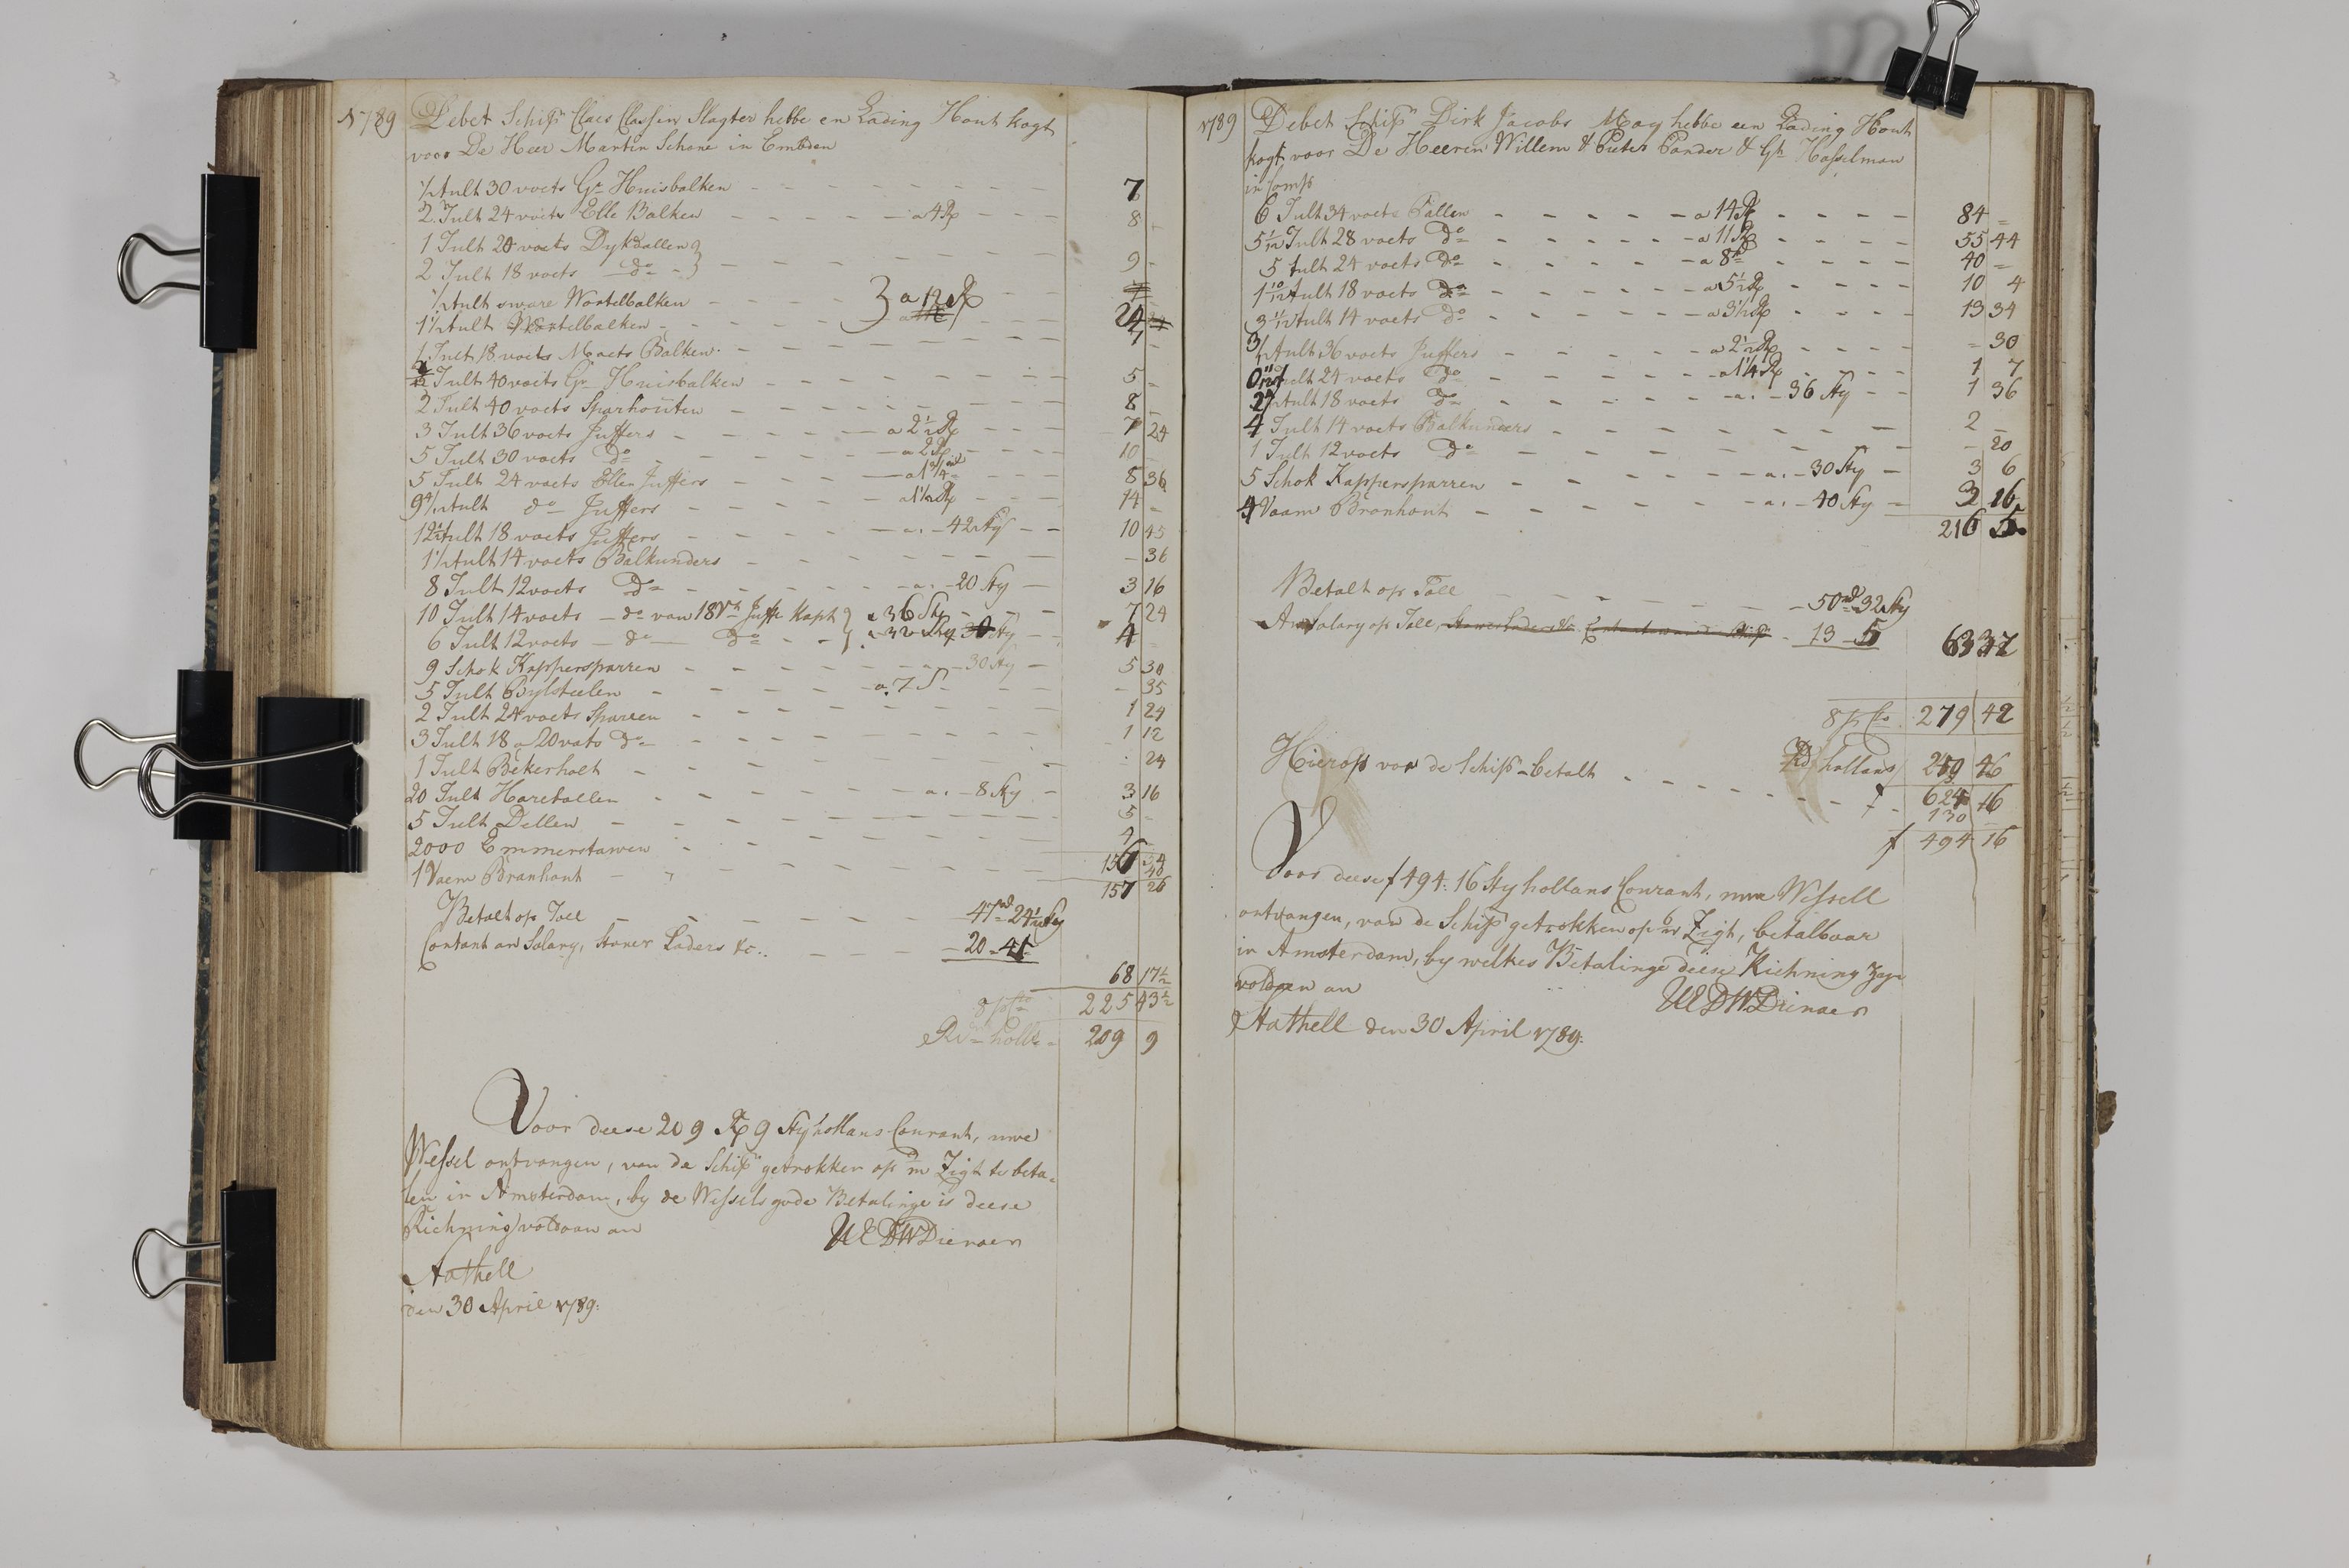 1789 Debet Schipr Claes Classen Slagter hebbe en Lading Hout kogt
voor De Heer Martin Schone in Embden
1/2 Tult 30 voets Gr Huisbalken 7
2 Tult 24 voets Elle Balken a 4 R 8 -
1 Tult 20 voets Dykballen
2 Tult 18 voets do 9 -
Tult sware Wortelbalken
1 1/2 Tult Wortelbalken 3 a 12 R 24
1 Tult 18 voets Maets Balken 7 -
Tult 40 voets Gr Huisbalken 5 -
2 Tult 40 voets Sparhouten 8 -
3 Tult 36 voets Juffers a 2 1/2 R 7 24
5 Tult 30 voets do a 2 R 10 -
5 Tult 24 voets Ellen Juffers a 1 3/4 8 36
9 4/12 Tult do Juffers a 1 1/2 R 14 -
12 1/2 Tult 18 voets Juffers a - 42 Sty 10 45
1 1/2 Tult 14 voets Balkunders - 36
8 Tult 12 voets Do a - 20 Sty 3 16
10 Tult 14 voets do van 18 vt Juffe Kaph a 36 Sty 7 24
6 Tult 12 voets do do a 32 Sty 30 Sty 4 -
9 Schok Kappersparren a - 30 Sty 5 30
5 Tult Bylsteelen a 7 S - 35
2 Tult 24 voets Sparren 1 24
3 Tult 18 a 20 voets do 1 12
1 Tult Bekerholt - 24
20 Tult Harebollen a - 8 Sty 3 16
5 Tult Dellen 5 -
2000 Emmerstawen 4 -
156 34
1 Vaem Branhout 48
157 26
Betalt op Toll 47 rd 24 1/2 Sty
Contant an Salary, Stouer Laders &c. 20 - 41
68 17 1/2
8 p Cto 225 43 1/2
Rd holls 209 9
Voor deese 209 R 9 Sty hollans Courant, mve
Wessel ontvangen, van de Schipr getrokken op m Zigt te beta-
len in Amsterdam, by de Wessels gode Betalinge is deese
Richning voldaan an UE DW Dienaer
Hathell
den 30 April 1789.
1789 Debet Schipr Dirk Jacobs May hebbe een Lading Hout
kogt voor De Heeren Willem & Pieter Pander & Gh Hasselman
in Comp
6 Tult 34 voets Ballen a 14 R 84 -
5 1/12 Tult 28 voets do a 11 R 55 44
5 Tult 24 voets do a 8 R 40 -
1 10/12 Tult 18 voets do a 5 1/2 R 10 4
3 11/12 Tult 14 voets do a 3 1/2 R 13 34
3/12 Tult 36 voets Juffers a 2 1/2 R - 30
0 11/12 Tult 24 voets do a 1 1/4 R 1 7
Tult 18 voets do a - 36 Sty 1 36
4 Tult 14 voets Balkunders 2 -
1 Tult 12 voets do - 20
5 Schok Kappersparren a - 30 Sty 3 6
4 Vaam Branhout a - 40 Sty 3 16
216 5
Betalt op Toll 50 rd 32 Sty
An Salary op Toll, Stouer Laders &c Contant 13 - 5 63 37
8 p Cto 279 42
Rd hollans 259 46
Hierop von de Schipr betalt f 624 16
130
f 494 16
Voor deese f 494: 16 Sty hollans Courant, mve Wessell
ontvangen, van de Schipr getrokken op Zigt, betalbaar
in Amsterdam, by welkes Betalinge deese Richning zyn
voldaan an UE DW Dienaer
Hathell den 30 April 1789.